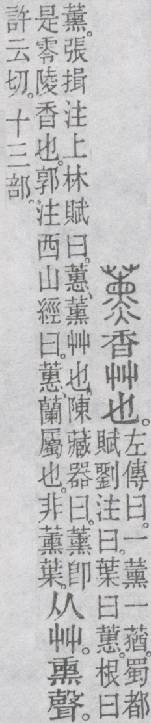 薰香艸也。左傳曰。一薰一蕕。蜀都
賦劉注曰。葉曰蕙。根曰
薰。張揖注上林賦曰。蕙、薰艸也。陳藏器曰。薰卽
是零陵香也。郭注西山經曰。蕙、蘭屬也。非薰葉。
从艸。熏聲。
許云切。十三部。